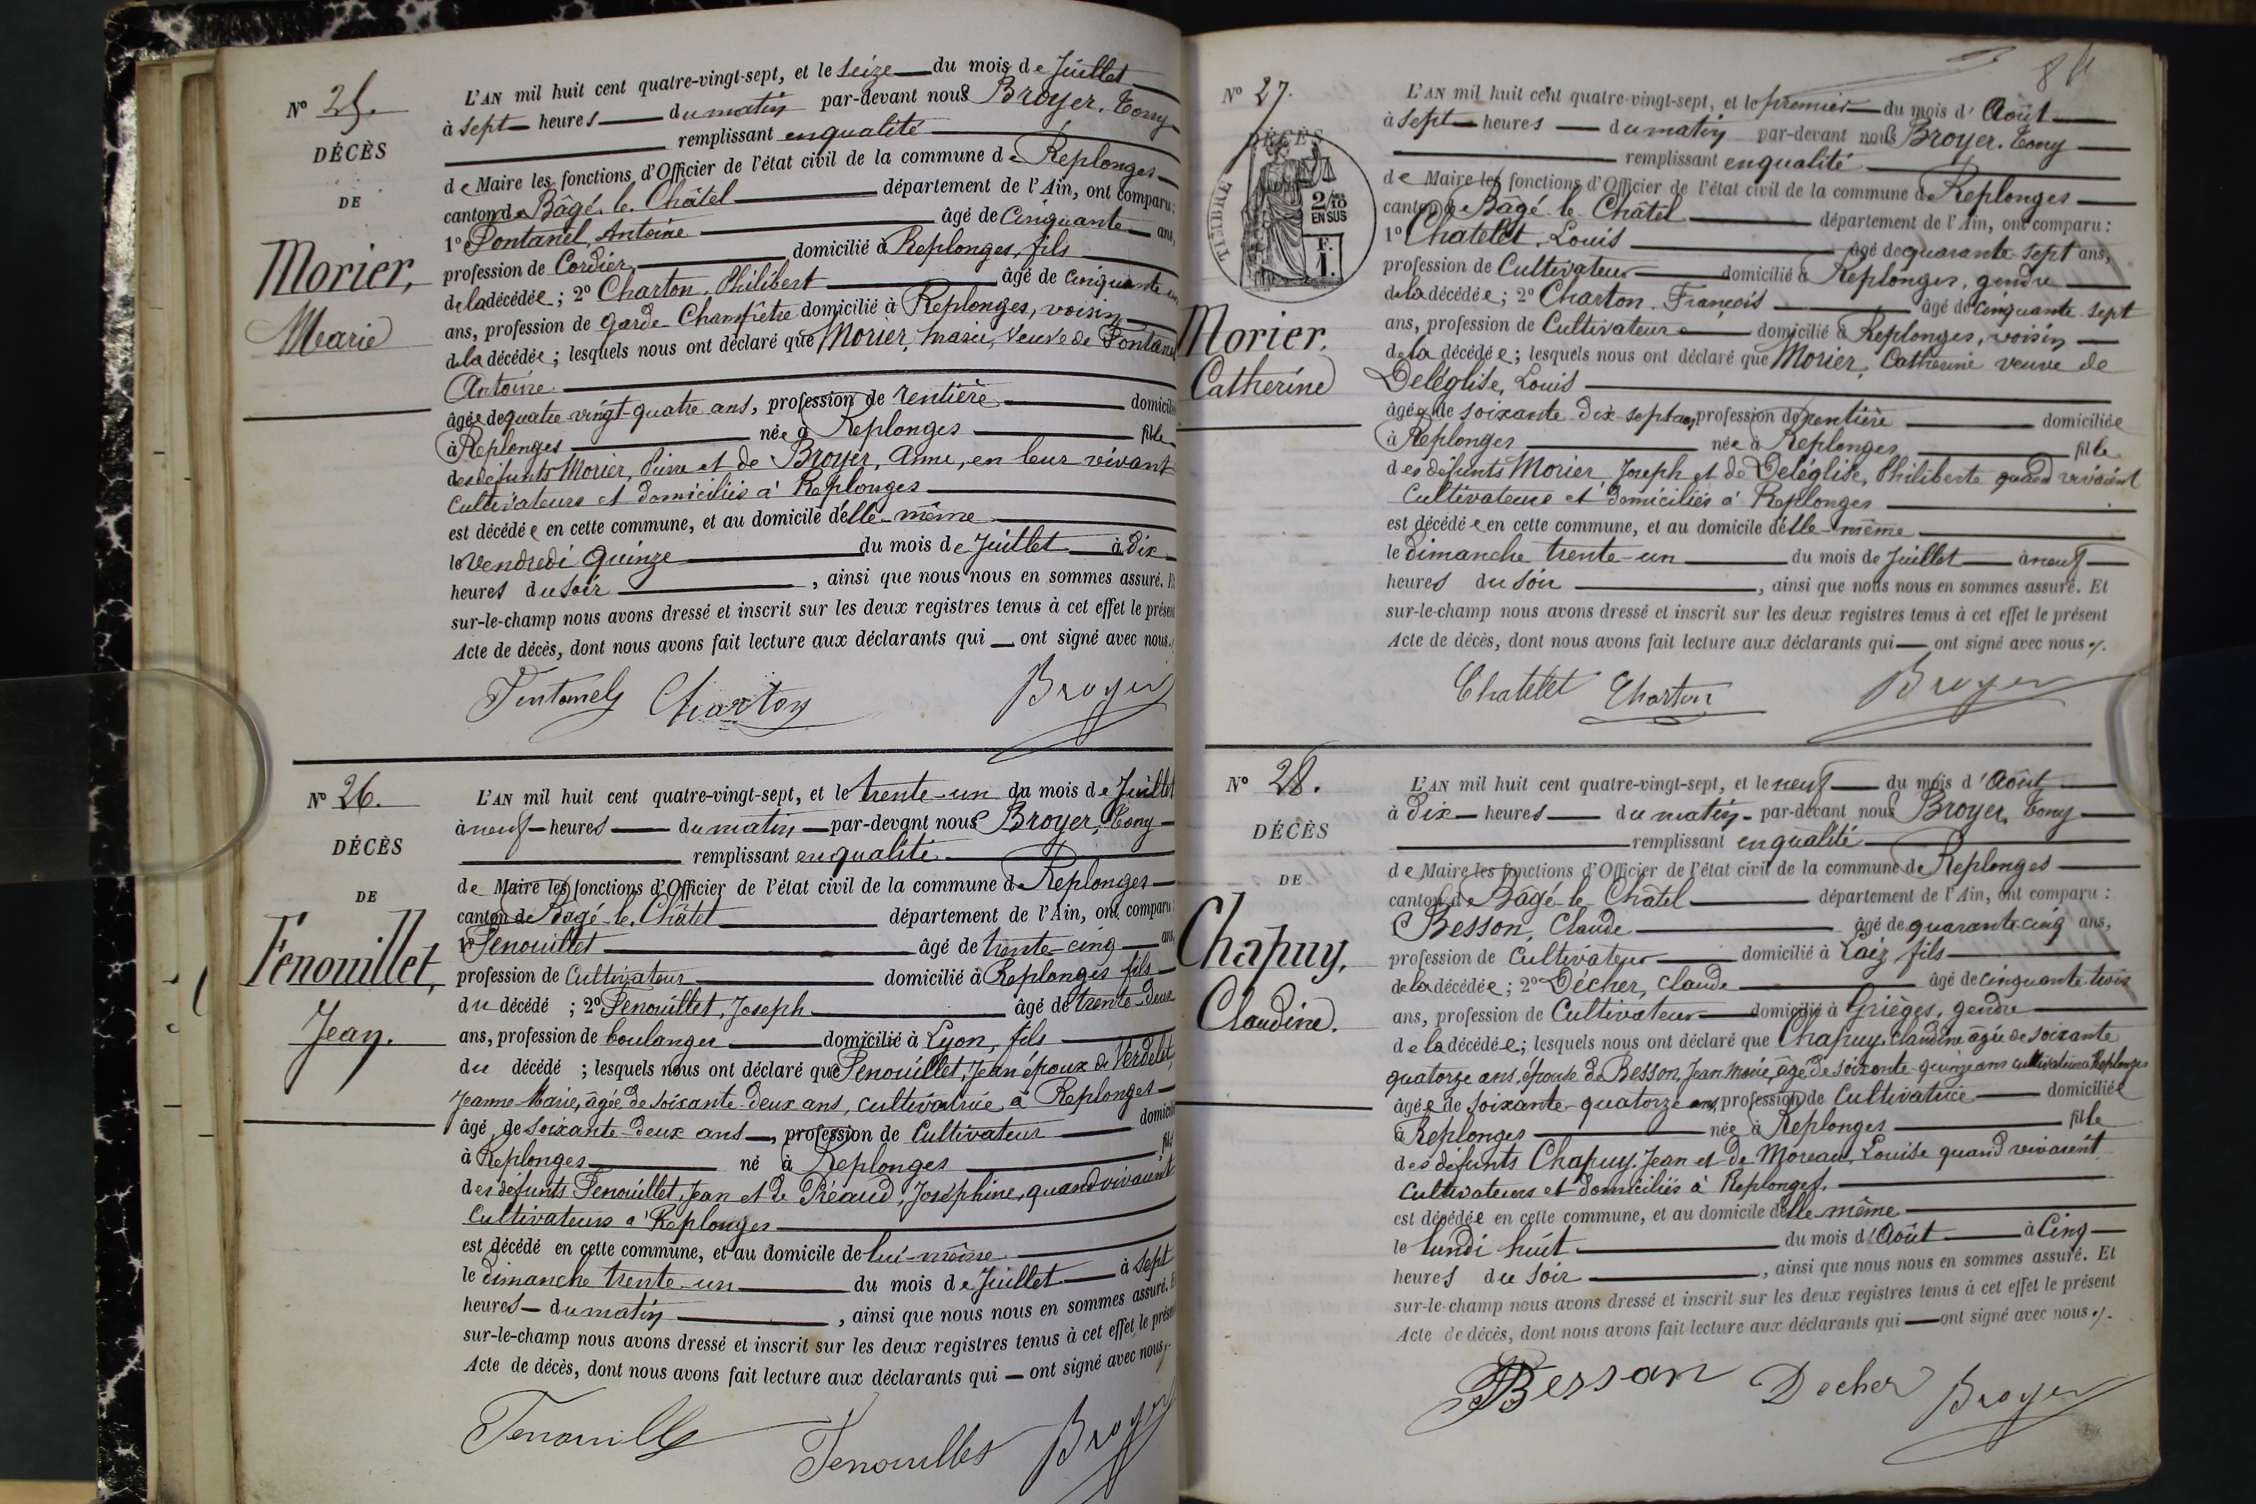 N° 25.
DÉCÈS
DE
Morier,
Marie
L'AN mil huit cent quatre-vingt-sept, et le seize du mois de Juillet
à sept heures du matin par-devant nous Broyer, Tony
remplissant en qualité
de Maire les fonctions d'Officier de l'état civil de la commune de Replonges
canton de Bâgé-le-Châtel département de l'Ain, ont comparu :
1° Fontanel, Antoine âgé de Cinquante ans,
profession de Cordier domicilié à Replonges, fils
de la décédée ; 2° Charton, Philibert âgé de cinquante
ans, profession de garde-Champêtre domicilié à Replonges, voisin
de la décédée ; lesquels nous ont déclaré que Morier, Marie, Veuve de Fontanel
Antoine
âgée de quatre-vingt-quatre ans, profession de rentière domiciliée
à Replonges née à Replonges fille
des défunts Morier, Pierre et de Broyer, Anne, en leur vivant
Cultivateurs et domiciliés à Replonges
est décédée en cette commune, et au domicile d'elle-même
le Vendredi quinze du mois de Juillet à dix
heures du soir , ainsi que nous nous en sommes assuré. Et
sur-le-champ nous avons dressé et inscrit sur les deux registres tenus à cet effet le présent
Acte de décès, dont nous avons fait lecture aux déclarants qui ont signé avec nous.
Fontanel Charton Broyer
N° 26.
DÉCÈS
DE
Fenouillet,
Jean.
L'AN mil huit cent quatre-vingt-sept, et le trente-un du mois de Juillet
à neuf heures du matin par-devant nous Broyer, Tony
remplissant en qualité
de Maire les fonctions d'Officier de l'état civil de la commune de Replonges
canton de Bâgé-le-Châtel département de l'Ain, ont comparu
1° Fenouillet âgé de trente-cinq ans,
profession de Cultivateur domicilié à Replonges fils
du décédé ; 2° Fenouillet, Joseph âgé de trente-deux
ans, profession de boulanger domicilié à Lyon, fils
du décédé ; lesquels nous ont déclaré que Fenouillet, Jean époux de Verdelet,
Jeanne Marie, âgée de soixante-deux ans, cultivatrice à Replonges
âgé de soixante-deux ans, profession de Cultivateur domicilié
à Replonges né à Replonges fils
des défunts Fenouillet, Jean et de Préaud, Joséphine, quand vivaient
Cultivateurs à Replonges
est décédé en cette commune, et au domicile de lui-même
le dimanche trente-un du mois de Juillet à sept
heures du matin , ainsi que nous nous en sommes assuré. Et
sur-le-champ nous avons dressé et inscrit sur les deux registres tenus à cet effet le présent
Acte de décès, dont nous avons fait lecture aux déclarants qui ont signé avec nous.
Fenouillet Fenouillet Broyer
N° 27.
DÉCÈS
TIMBRE
2/10
EN SUS
F.
1.
Morier,
Catherine
L'AN mil huit cent quatre-vingt-sept, et le premier du mois d'Août
à sept heures du matin par-devant nous Broyer, Tony
remplissant en qualité
de Maire les fonctions d'Officier de l'état civil de la commune de Replonges
canton de Bâgé-le-Châtel département de l'Ain, ont comparu :
1° Chatelet, Louis âgé de quarante-sept ans,
profession de Cultivateur domicilié à Replonges, gendre
de la décédée ; 2° Charton, François âgé de cinquante-sept
ans, profession de Cultivateur domicilié à Replonges, voisin
de la décédée ; lesquels nous ont déclaré que Morier, Catherine veuve de
Deléglise, Louis
âgée de soixante-dix-sept ans, profession de rentière domiciliée
à Replonges née à Replonges fille
des défunts Morier, Joseph et de Deléglise, Philiberte quand vivaient
Cultivateurs et domiciliés à Replonges
est décédée en cette commune, et au domicile d'elle-même
le dimanche trente-un du mois de Juillet à neuf
heures du soir , ainsi que nous nous en sommes assuré. Et
sur-le-champ nous avons dressé et inscrit sur les deux registres tenus à cet effet le présent
Acte de décès, dont nous avons fait lecture aux déclarants qui ont signé avec nous.
Chatelet Charton Broyer
N° 28.
DÉCÈS
DE
Chapuy,
Claudine.
L'AN mil huit cent quatre-vingt-sept, et le neuf du mois d'Août
à dix heures du matin par-devant nous Broyer, Tony
remplissant en qualité
de Maire les fonctions d'Officier de l'état civil de la commune de Replonges
canton de Bâgé-le-Châtel département de l'Ain, ont comparu :
Besson, Claude âgé de quarante-cinq ans,
profession de Cultivateur domicilié à Laiz fils
de la décédée ; 2° Décher, Claude âgé de cinquante-trois
ans, profession de Cultivateur domicilié à Grièges, gendre
de la décédée ; lesquels nous ont déclaré que Chapuy, Claudine âgée de soixante
quatorze ans, épouse de Besson, Jean Marie, âgé de soixante-quinze ans cultivateur à Replonges
âgée de soixante-quatorze ans, profession de Cultivatrice domiciliée
à Replonges née à Replonges fille
des défunts Chapuy, Jean et de Moreau, Louise quand vivaient
Cultivateurs et domiciliés à Replonges.
est décédée en cette commune, et au domicile d'elle-même
le lundi huit du mois d'Août à Cinq
heures du soir , ainsi que nous nous en sommes assuré. Et
sur-le-champ nous avons dressé et inscrit sur les deux registres tenus à cet effet le présent
Acte de décès, dont nous avons fait lecture aux déclarants qui ont signé avec nous.
Besson Decher Broyer